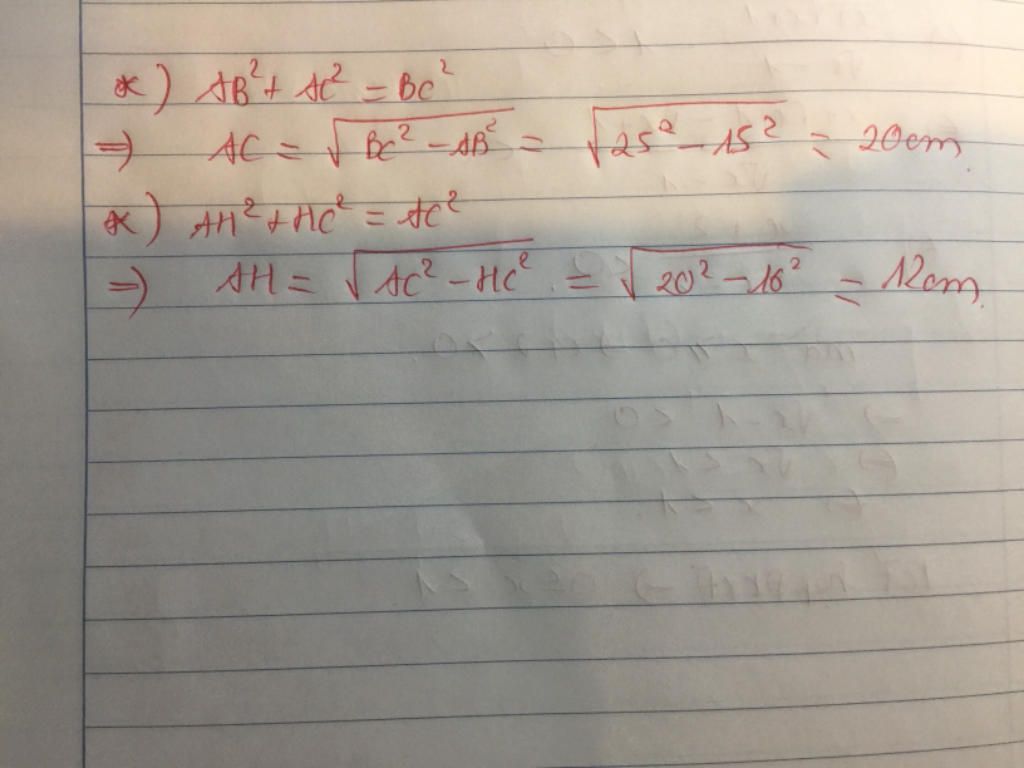 *) AB² + AC² = BC²
=) AC = √(BC² - AB²) = √(25² - 15²) = 20cm.
*) AH² + HC² = AC²
=) AH = √(AC² - HC²) = √(20² - 16²) = 12cm.